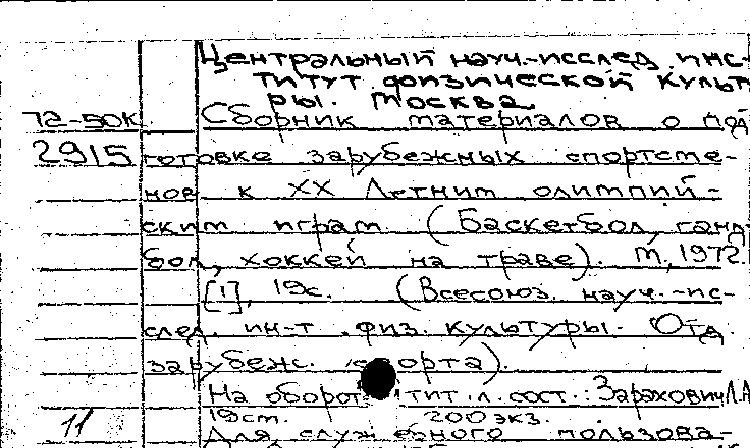 Центральный науч.-исслед. инс-
титут физической культ
ры. Москва
72-50К Сборник материалов о под
2915 готовке зарубежных спортсме-
нов к XX Летним олимпий-
ским играм (Баскетбол, ганд-
бол, хоккей на траве). М., 1972.
[1], 19с. (Всесоюз. науч.-ис-
след. ин-т физ. культуры. Отд.
зарубеж. спорта).
На обороте тит. л. сост.: Зарахович Л.А
19см. 200 экз.
11 Для служебного пользова-